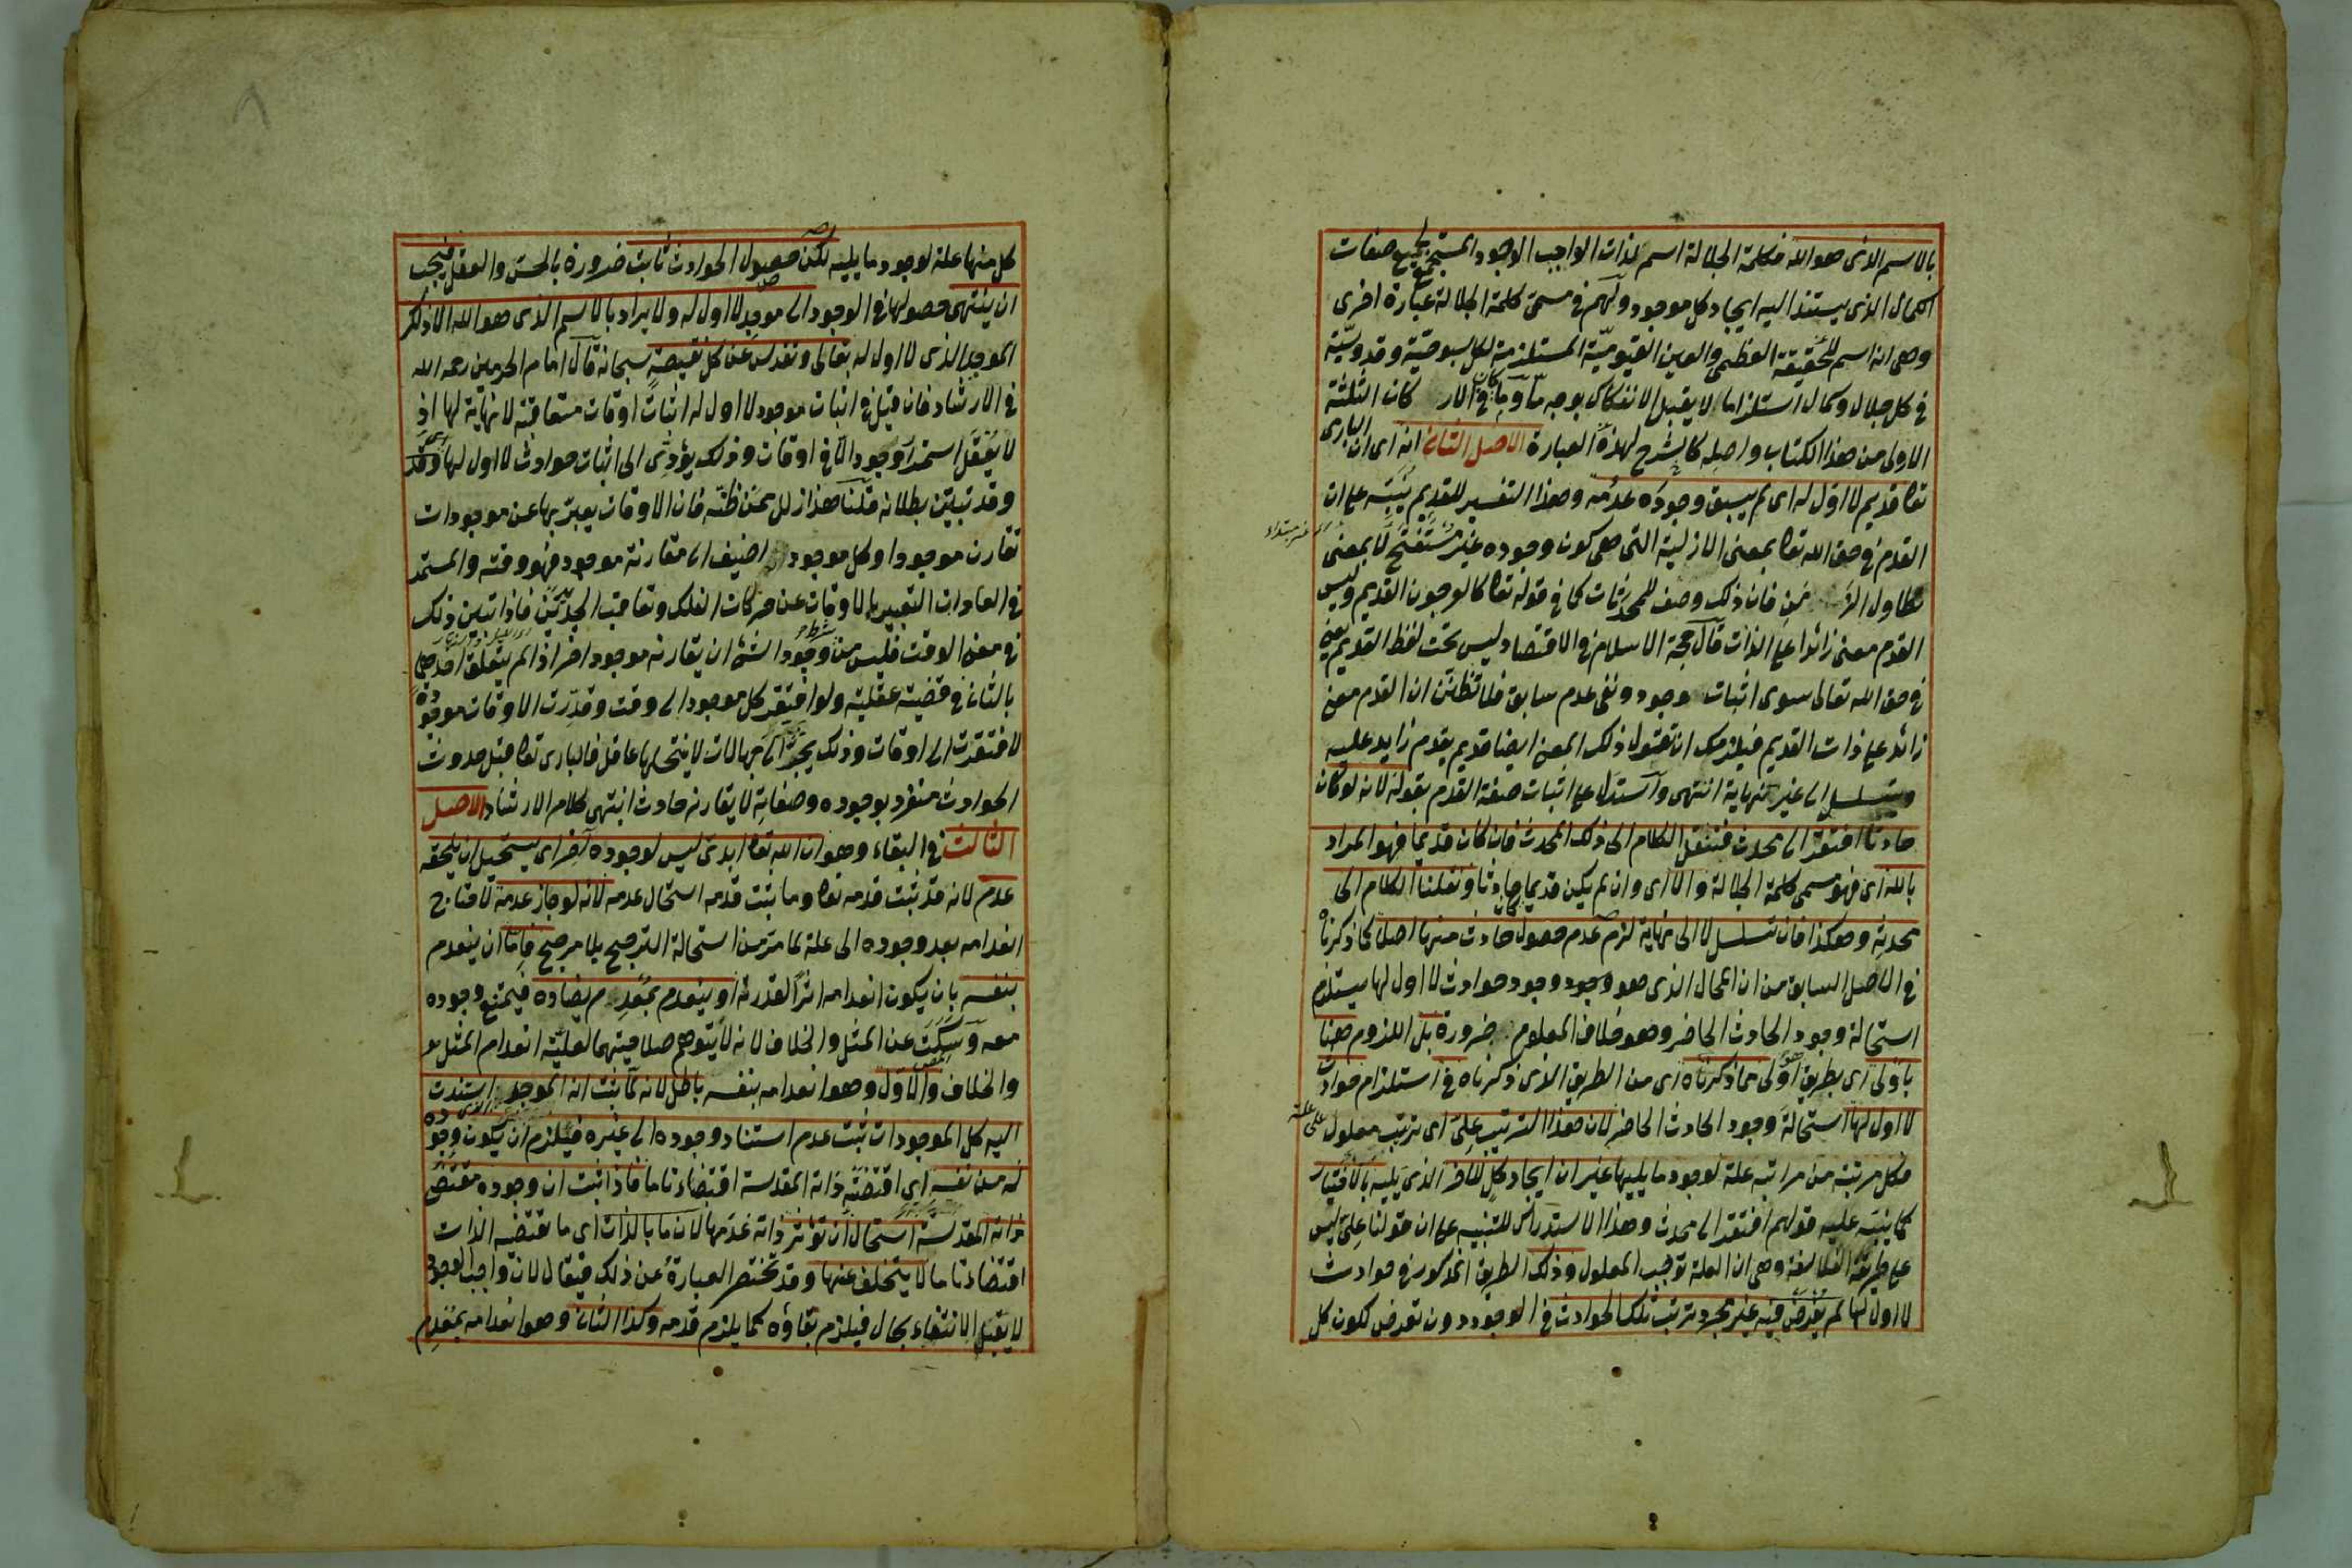 بالاسم الذى هو الله فكلمة الجلالة اسم لذات الواجب الوجود المستجمع لجميع صفات
الكمال الذى يستند اليه ايجاد كل موجود ولهم فى مسمى كلمة الجلالة عبارة اخرى
وهى انه اسم للحقيقة العظمى والعين القيومية المستلزمة لكل سبوحية وقدوسية
فى كل جلال وكمال استلزاما لا يقبل الانفكاك بوجه ما وما فى الاركان الثلثة
الاولى من هذا الكتاب واصله كالشرح لهذه العبارة الاصل الثانى انه اى ان البارى
تعا قديم لا اول له اى لم يسبق وجوده عدمه وهذا التفسير للقديم ينبه على ان
القدم فى حق الله تعا بمعنى الازلية التى هى كون وجوده غير مستفتح لا بمعنى
تطاول الزمن فان ذلك وصف للمحدثات كما فى قوله تعا كالعرجون القديم وليس
القدم معنى زائدا على الذات قال حجة الاسلام فى الاقتصاد ليس تحت لفظ القديم يعنى
فى حق الله تعالى سوى اثبات وجود ونفى عدم سابق فلا تظنن ان القدم معنى
زائد على ذات القديم فيلزمك ان تقول ذلك المعنى ايضا قديم بقدم زايد عليه
ويتسلسل الى غير نهاية انتهى واستدل على اثبات صفة القدم بقوله لانه لو كان
حادثا افتقر الى محدث فننقل الكلام الى ذلك المحدث فان كان قديما فهو المراد
بالله اى فهو مسمى كلمة الجلالة والا اى وان لم يكن قديما كان حادثا ونقلنا الكلام الى
محدثه وهكذا فان تسلسل لا الى نهاية لزم عدم حصول حادث منها اصلا لما ذكرناه
فى الاصل السابق من ان المحال الذى هو وجود وجود حوادث لا اول لها يستلزم
استحالة وجود الحادث الحاضر وهو خلاف المعلوم ضرورة بل اللزوم هنا
باولى اى بطريق اولى مما ذكرناه اى من الطريق الذى ذكرناه فى استلزام حوادث
لا اول لها استحالة وجود الحادث الحاضر لان هذا الترتيب على اى ترتب معلول على علة
فكل مرتبة من مراتبه علة لوجود ما يليها غير ان ايجاد كل للاخر الذى يليه بالاختيار
كما ينبه عليه قولهم افتقر الى محدث وهذا الاستدراك للتنبيه على ان قولنا على ليس
على طريقة الفلاسفة وهى ان العلة توجب المعلول وذلك الطريق المذكور فى حوادث
لا اول لها لم يفرض فيه غير مجرد ترتب تلك الحوادث فى الوجود دون تعرض لكون كل
كل منها علة لوجود ما يليه لكن حصول الحوادث ثابت ضرورة بالحس والعقل فيجب
ان ينتهى حصولها فى الوجود الى موجد لا اول له ولا يراد بالاسم الذى هو الله الا ذلك
الموجد الذى لا اول له تعالى وتقدس عن كل نقيصة سبحانه قال امام الحرمين رحمه الله
فى الارشاد فان قيل فى اثبات موجود لا اول له اثبات اوقات متعاقبة لا نهاية لها اذ
لا يعقل استمرار وجود الا فى اوقات وذلك يؤدى الى اثبات حوادث لا اول لها
وقد تبين بطلانه قلنا هذا زلل ممن ظنه فان الاوقات يعبر بها عن موجودات
تقارن موجودا وكل موجود اضيف الى مقارنة موجود فهو وقته والمستمر
فى العادات التعبير بالاوقات عن حركات الفلك وتعاقب الجديدين فاذا تبين ذلك
فى معنى الوقت فليس من شرط وجود الشئ ان يقارنه موجود اخر اذا لم يتعلق احدهما
بالثانى فى قضية عقلية ولو افتقر كل موجود الى وقت وقدرت الاوقات موجودة
لافتقرت الى اوقات وذلك يجر الى جهالات لا ينتحلها عاقل فالبارى تعا قبل حدوث
الحوادث منفرد بوجوده وصفاته لا يقارنه حادث انتهى كلام الارشاد الاصل
الثالث فى البقاء وهو ان الله تعا ابدى ليس لوجوده آخر اى يستحيل ان يلحقه
عدم لانه قد ثبت قدمه تعا وما ثبت قدمه استحال عدمه لانه لو جاز عدمه لاحتاج
انعدامه بعد وجوده الى علة لما مر من استحالة الترجيح بلا مرجح فاما ان ينعدم
بنفسه بان يكون انعدامه اثرا لقدرته او ينعدم بمعدم يضاده فيمتنع وجوده
معه وسكت عن المثل والخلاف لانه لا يتوهم صلاحيتهما لعلية انعدام المثل
والخلاف والاول وهو انعدامه بنفسه باطل لانه لما ثبت انه الموجد الذى استندت
اليه كل الموجودات ثبت عدم استناد وجوده الى غيره فيلزم ان يكون وجوده
له من نفسه اى اقتضته ذاته المقدسة اقتضاء تاما فاذا ثبت ان وجوده مقتضى
ذاته المقدسة استحال ان تؤثر ذاته عدمها لان ما بالذات اى ما تقتضيه الذات
اقتضاء تاما لا يتخلف عنها وقد تختصر العبارة عن ذلك فيقال لان واجب الوجود
لا يقبل الانتفاء بحال فيلزم بقاؤه كما يلزم قدمه وكذا الثانى وهو انعدامه بمعدم